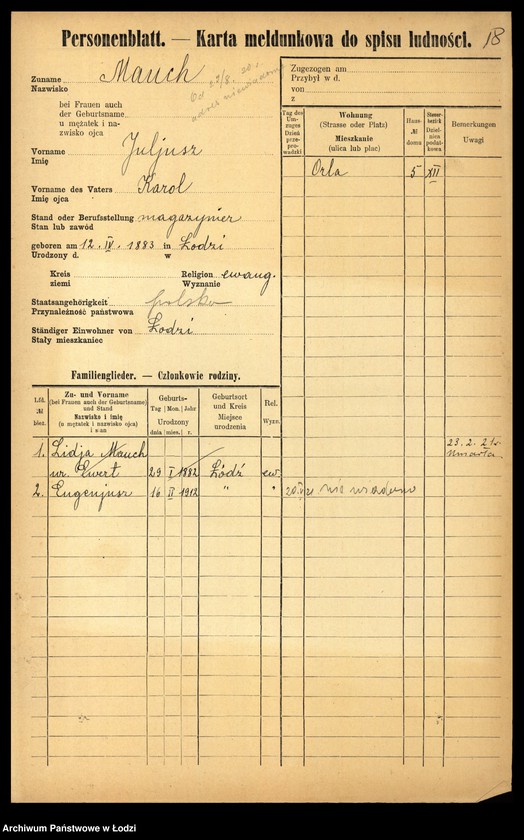 Personenblatt. — Karta meldunkowa do spisu ludności.
18
Zuname Mauch
Nazwisko
od 22/8. 20 r.
adres niewiadomy
bei Frauen auch
der Geburtsname
u mężatek i na-
zwisko ojca
Vorname Juljusz
Imię
Vorname des Vaters Karol
Imię ojca
Stand oder Berufsstellung magazynier
Stan lub zawód
geboren am 12. IV. 1883 in Łodzi
Urodzony d. w
Kreis Religion ewang.
ziemi Wyznanie
Staatsangehörigkeit polska
Przynależność państwowa
Ständiger Einwohner von Łodzi
Stały mieszkaniec
Zugezogen am
Przybył w d.
von
z
Tag des Um-zuges
Dzień prze-prowadzki
Wohnung
(Strasse oder Platz)
Mieszkanie
(ulica lub plac)
Haus-
№
domu
Steuer-bezirk
Dzielnica podat-kowa
Bemerkungen
Uwagi
Orla 5 XII
Familienglieder. — Członkowie rodziny.
Lfd.
№
bież.
Zu- und Vorname
(bei Frauen auch der Geburtsname)
und Stand
Nazwisko i imię
(u mężatek i nazwisko ojca)
i stan
Geburts-
Tag Mon. Jahr
Urodzony
dnia mies. r.
Geburtsort
und Kreis
Miejsce
urodzenia
Rel.
Wyzn.
1. Lidja Mauch 23.2.21 r.
ur. Ewert 29 I 1882 Łódź ew. umarła.
2. Eugenjusz 16 II 1912 " " nie wiadomo
Archiwum Państwowe w Łodzi